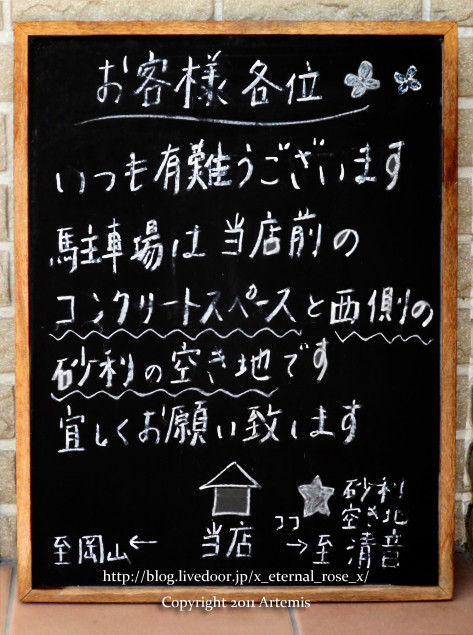 お客様各位
いつも有難うございます
駐車場は当店前の
コンクリートスペースと西側の
砂利の空き地です
宜しくお願い致します
砂利
ココ 空き地
至岡山← 当店 →至清音
http://blog.livedoor.jp/x_eternal_rose_x/
Copyright 2011 Artemis